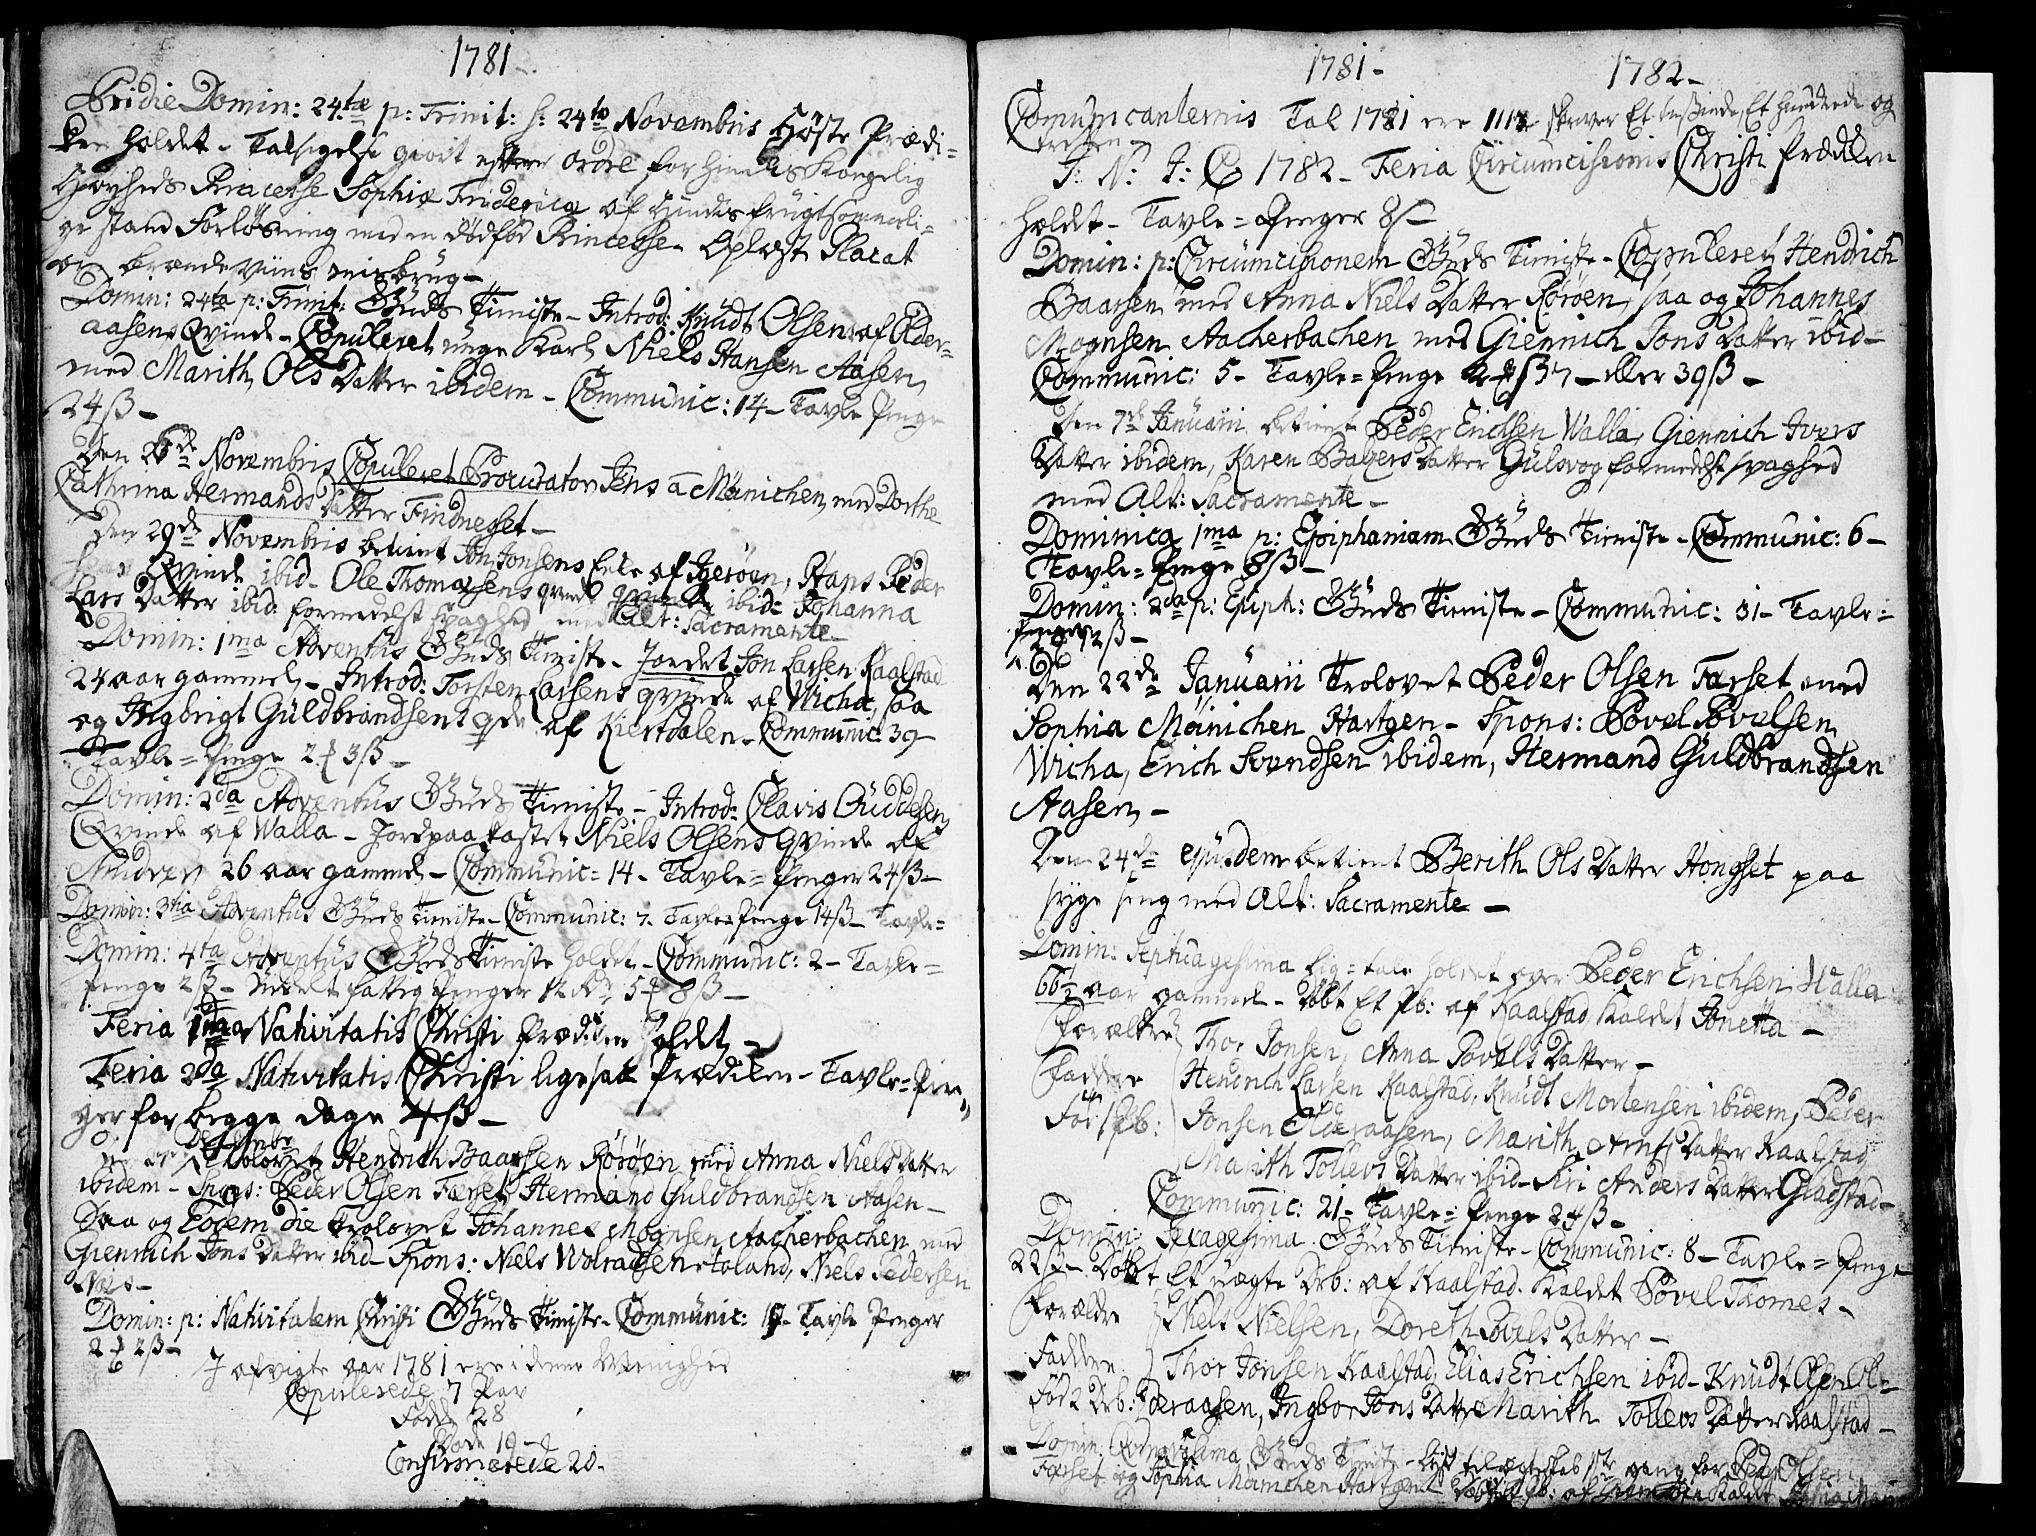 1781-
Pridie Domin: 24tæ p: Trinit: h: 24to Novembris Høste Prædi-
ken holdet - Taksigelse giort efter ordre for hindes Kongelig
Høyheds Princesse Sophia Friderica af Hindes frugtsommeli-
ge stand Forløsning med en dødfød Princesse - Oplæst Placat
om brændeviins misbrug -
Domin: 24ta p: Trinit: Guds Tieniste - Introd: Knudt Olsens af Elder-
aasens Qvinde - Copuleret unge Karl Niels Hansen Aasen,
med Marith Ols Datter ibidem - Communic: 14 - Tavle Penge
24 ß -
Den 28de Novembris Copuleret Procurator Jens a Mönichen, med Dorthe
Cathrina Hermands Datter Findnesset -
Den 29de Novembris betient Jon Jonsens Enke af Igerøen, Hans Peder
Qvinde ibid - Ole Thomæsens qvinde ibid - Johanna
Lars Datter ibid formedelst svaghed med Alt: Sacramente -
Domin: 1ma Adventus Guds Tieniste - Jordet Jon Larsen Kaalstad
24 aar gammel - Introd: Torsten Larsens qvinde af Wicha, saa
og Ingbrigt Guldbrandsens qde af Kiertdalen - Communic: 39 -
Tavle = Penge 2 ₰ 3 ß -
Domin: 2da Adventus Guds Tieniste - Introd: Clavis Guddesens
Qvinde af Walla - Jordpaakastet Niels Olsens Qvinde af
26 aar gammel - Communic = 14 - Tavle = Penger 24 ß -
Domin: 3tia Adventus Guds Tieniste - Communic: 7 - Tavle = Penge 14 ß - Tavle =
Domin: 4ta Adventus Guds Tieniste holdt - Communic: 2 - Tavle =
Penge 2 ß - Uddelt fattig Penger 5 ₰ 8 ß -
Feria 1ma Nativitatis Christi Prædiken holdt -
Feria 2da Nativitatis Christi ligesaa Prædiken - Tavle = Pen-
ger for begge dage 4 ß -
Decembr
Trolovet Hendrich Baarsen Rörøen med Anna Niels Datter
ibidem - Spons: Peder Olsen Færset, Hermand Guldbrandsen Aasen -
Saa og Eodem die Trolovet Johannes Mognsen Aacherbachen med
Giennich Jons Datter ibid - Spons: Niels Wolradsen Toland, Niels Pedersen
Domin: p: Nativitatem Christi Guds Tieniste - Communic: 17 - Tavle Penger
2 ₰ 2 ß -
I afvigte aar 1781 ere i denne Menighed
Copulerede 7 Par
Fødde 28
Døde 19 -
Confirmerede 20 -
1781 - 1782 -
Communicanternis Tal 1781 ere 1113 skriver Et tusinde, Et hundrede og
tretten -
J: N: J: C 1782 - Feria Circumcisionis Christi Prædiken
holdt - Tavle = Penger 8 ß -
Domin: p: Circumcisionem Guds Tieniste - Copuleret Hendrich
Baarsen med Anna Niels Datter Rörøen, saa og Johannes
Mognsen Aacherbachen med Giennich Jons Datter ibid -
Communic: 5 - Tavle = Penge eller 39 ß -
Den 7de Januarii betient Peder Erichsen Walla, Giennich Ivers
Datter ibidem, Karen Baltzers Datter Gulsvog formedelst svaghed
med Alt: Sacramente -
Dominica 1ma p: Epiphaniam Guds Tieniste - Communic: 6 -
Tavle = Penge 8 ß -
Domin: 2da p: Epiph: Guds Tieniste - Communic: 31 - Tavle =
Penge 2 ß -
Den 22de Januarii Trolovet Peder Olsen Færset med
Sophia Mönichen Hartgen - Spons: Povel Povelsen
Wicha, Erich Svendsen ibidem, Hermand Guldbrandsen
Aasen, -
Den 24de ejusdem betient Berith Ols Datter Hongset paa
syge seng med Alt: Sacramente -
Domin: Septuagesima Lig = tale holdet over Peder Erichsen Walla
66 1/2 aar gammel - Døbt Et Pb: af Kaalstad Kaldet Jonetta -
Forældre Thor Jonsen, Anna Povels Datter -
Faddere Hendrich Larsen Kaalstad, Knudt Mortensen ibidem, Peder
Fød 1 Pb: Jonsen Elderaasen, Marith Arnts Datter Kaalstad
Marith Tollevs Datter ibid - Siri Anders Datter Gladstad -
Communic: 21 - Tavle = Penge 24 ß -
Domin: Sexagesima Guds Tieniste - Communic: 8 - Tavle = Penge
22 ß - Døbt Et uægte Drb: af Kaalstad Kaldet Povel Thomes -
Forældre Niels Nielsen, Doreth Povels Datter -
Faddere Thor Jonsen Kaalstad, Elias Erichsen ibid - Knudt Olsen El =
Fød 2 Drb: deraasen, Ingbor Jons Datter Marith Tollevs Datter Kaalstad -
Domin: Qvinquagesima Guds Tieniste - Lyst til ægteskab 1ste gang for Peder Olsen
Færset og Sophia Mönichen Hartgen - Døbt Et Pb: af Kaldet